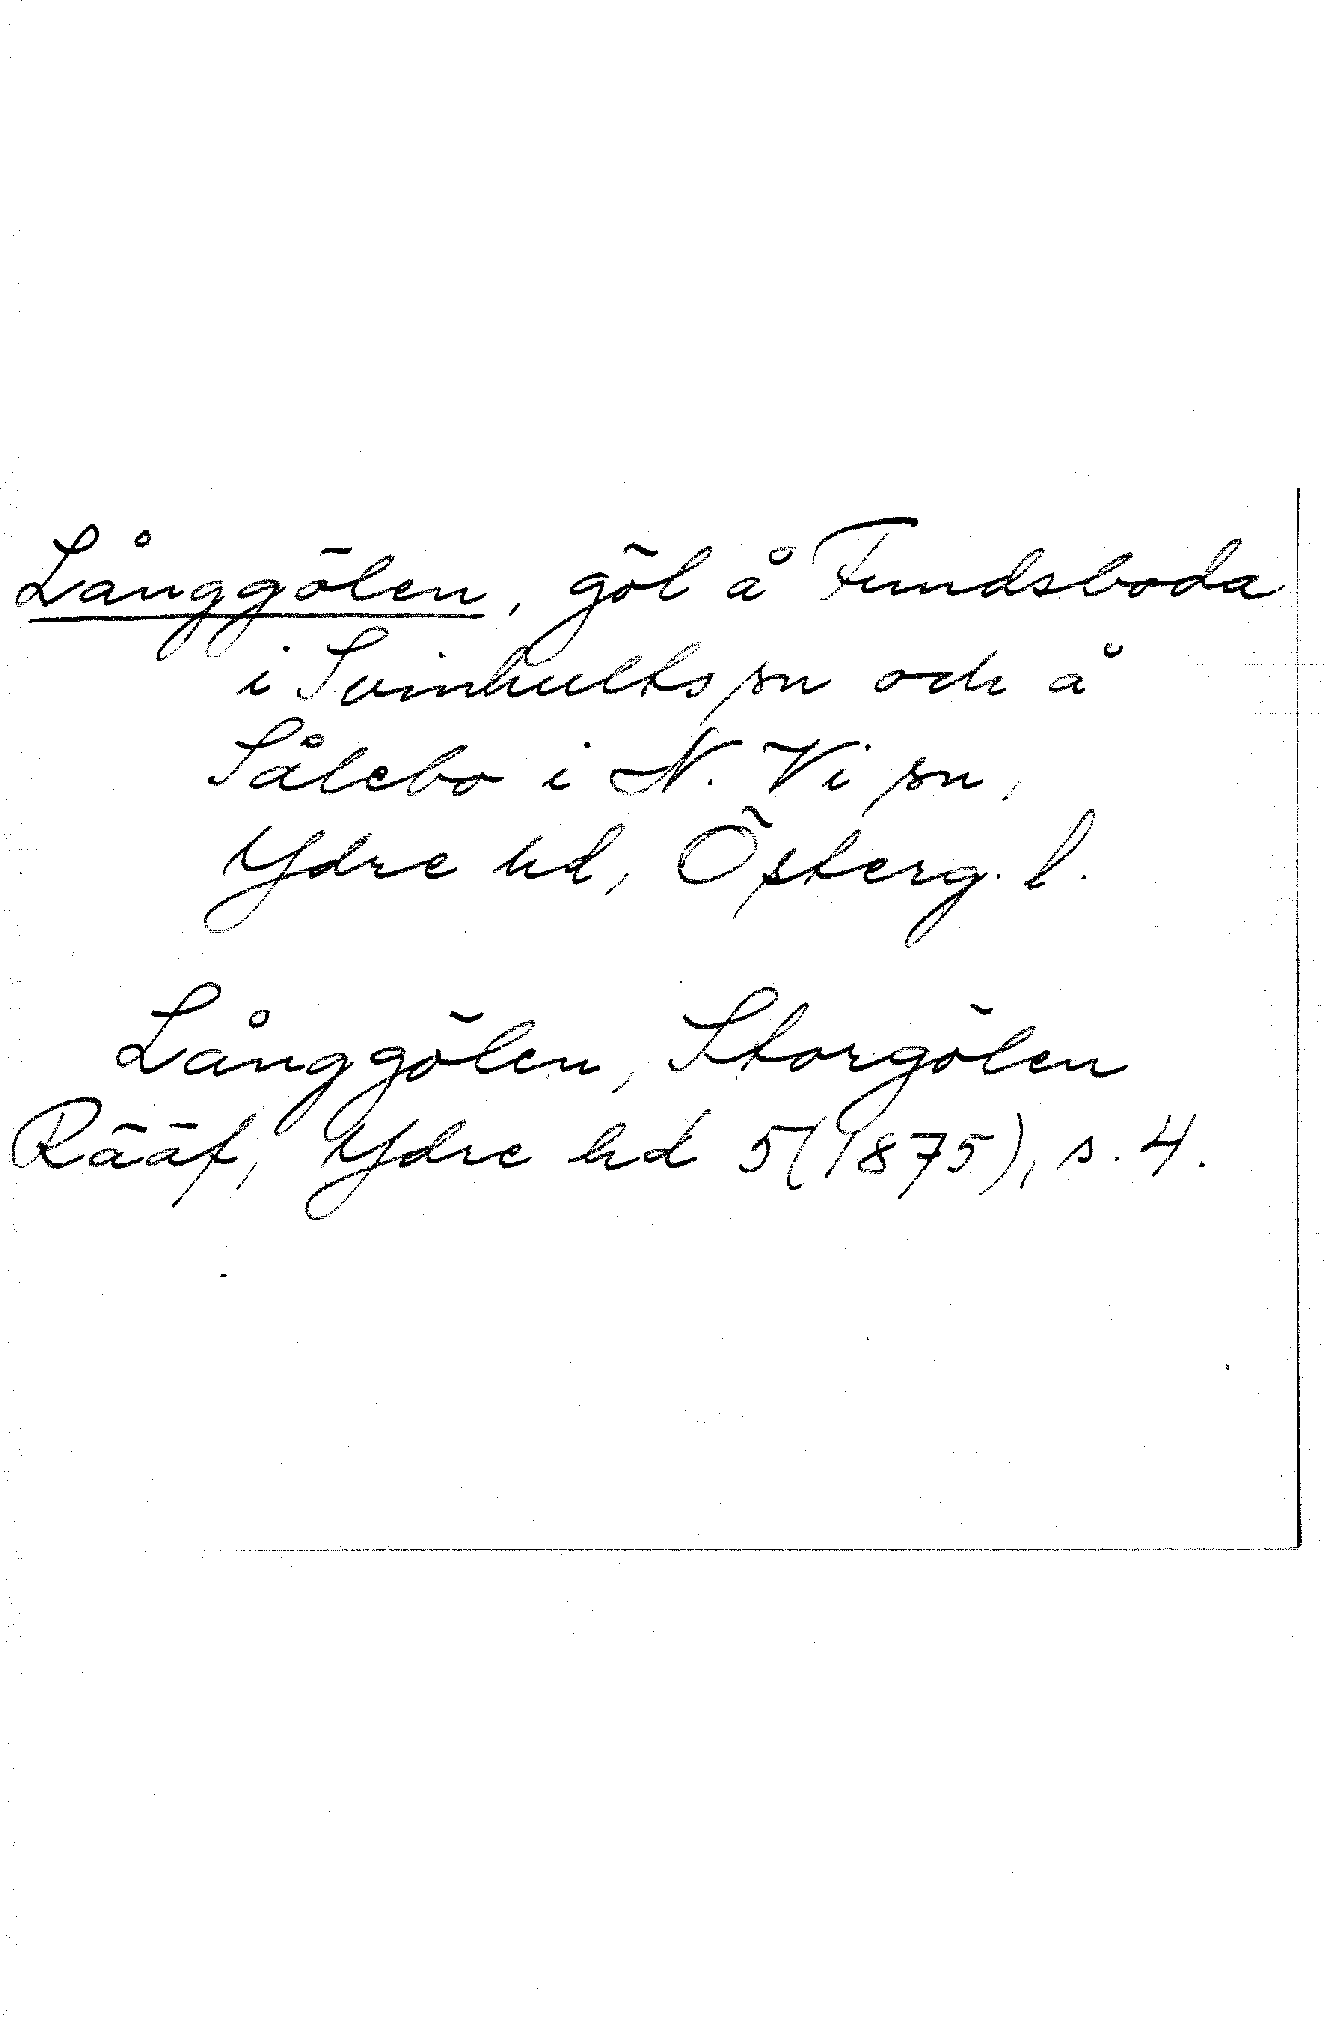 Långgölen, göl å Fundsboda
i Svinhults sn och å
Sålebo i N. Vi sn,
Ydre hd, Österg. l.
Långgölen, Storgölen
Rääf, Ydre hd 5(1875), s. 4.